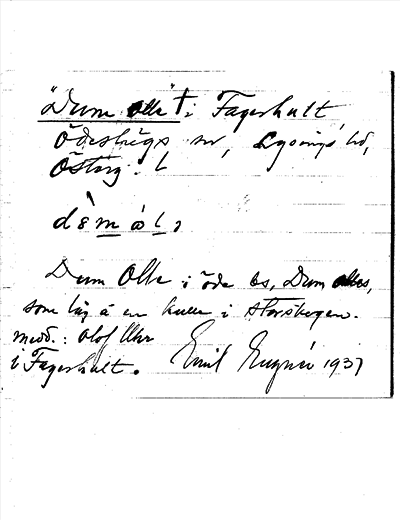 "Dum Olle" † i Fagerhult,
Ödeshögs sn, Lysings hd,
Österg. l.
Dum Olle i öde bs, Dum Olles,
som låg å en kulle i storskogen.
medd.: Olof Uhr
i Fagerhult. Emil 1937